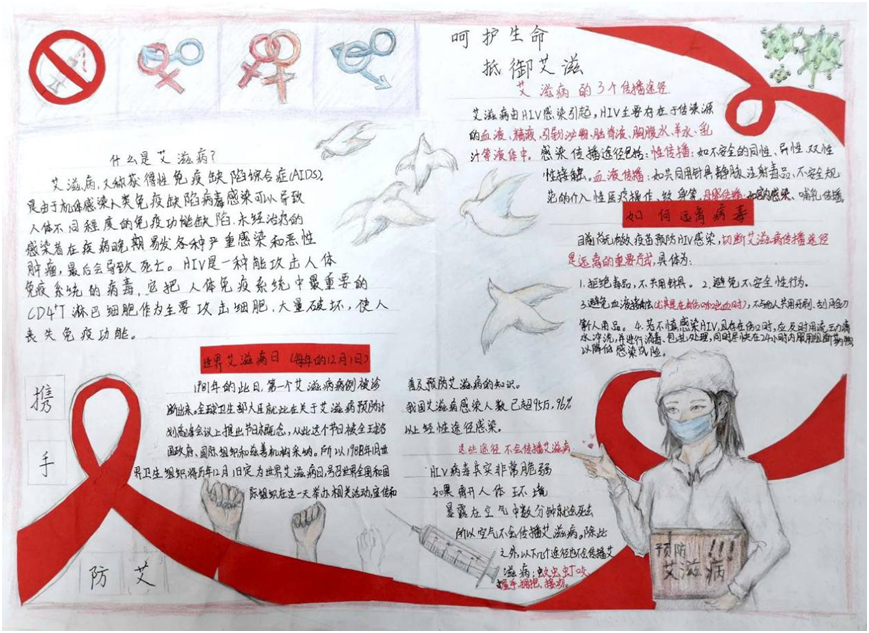 呵护生命
抵御艾滋
艾滋病的3个传播途径
艾滋病由HIV感染引起,HIV主要存在于传染源
的血液、精液、阴道分泌物、脑脊液、胸腹水、羊水、乳
汁等液体中。感染传播途径包括:性传播:如不安全的同性、异性、双性
性接触。血液传播:如共同用针具静脉注射毒品、不安全规
范的介入性医疗操作、文身等。母婴传播:感染、哺乳传播
如何远离病毒
目前尚无有效疫苗预防HIV感染,切断艾滋病传播途径
是远病的重要方式,具体为:
1.拒绝毒品,不共用针具。2.避免不安全性行为。
3.避免血液接触,不与他人共用牙刷、剃须刀
等人用品。4.若不慎感染HIV,且存在伤口时,应及时用流动的
水冲洗,并进行消毒、包扎处理,同时尽快在24小时内服用阻断药物
以降低感染风险。
什么是艾滋病?
艾滋病,又称获得性免疫缺陷综合症(AIDS),
是由于机体感染人类免疫缺陷病毒感染可以导致
人体不同程度的免疫功能缺陷,未经治疗的
感染者在疾病晚期易发各种严重感染和恶性
肿瘤,最后会导致死亡。HIV是一种能攻击人体
免疫系统的病毒,它把人体免疫系统中最重要的
CD4⁺T淋巴细胞作为主要攻击细胞,大量破坏,使人
丧失免疫功能。
世界艾滋病日(每年的12月1日)
1981年的此日,第一个艾滋病病例被诊
断出来,全球卫生部大臣就此在关于艾滋病预防计
划高峰会议上提出节日概念,从此这个节日被全球各
国政府,国际组织和慈善机构采纳。所以1988年1月世
界卫生组织将每年12月1日定为世界艾滋病日,号召世界各国和国
际组织在这一天举办相关活动,宣传和
普及预防艾滋病的知识。
我国艾滋病感染人数已超95万,96%
以上经性途径感染。
这些途径不会传播艾滋病
HIV病毒其实非常脆弱
如果离开人体环境
暴露在空气中数分钟就会死去
所以空气不会传播艾滋病。除此
之外,以下几个途径也不会传播艾
滋病:蚊虫叮咬、
握手、拥抱、接吻。
携
手
防艾
预防!!!
艾滋病